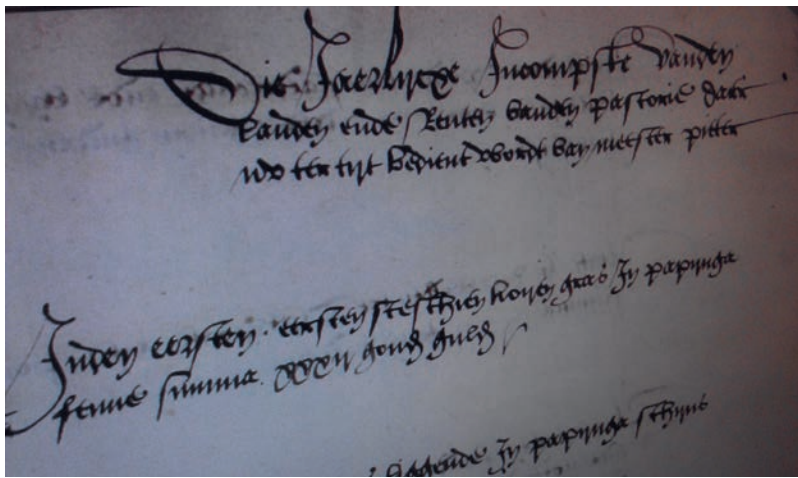 Die Jaerlicxe Incompste vanden
Landen ende Renten vanden pastorie daer
nu ter tyt bedient wordt van meester pitter
Inden eersten. eersten sesthien koeyen gras Jn papynga
fenne summa. xxxij goud guld
liggende Jn papynga